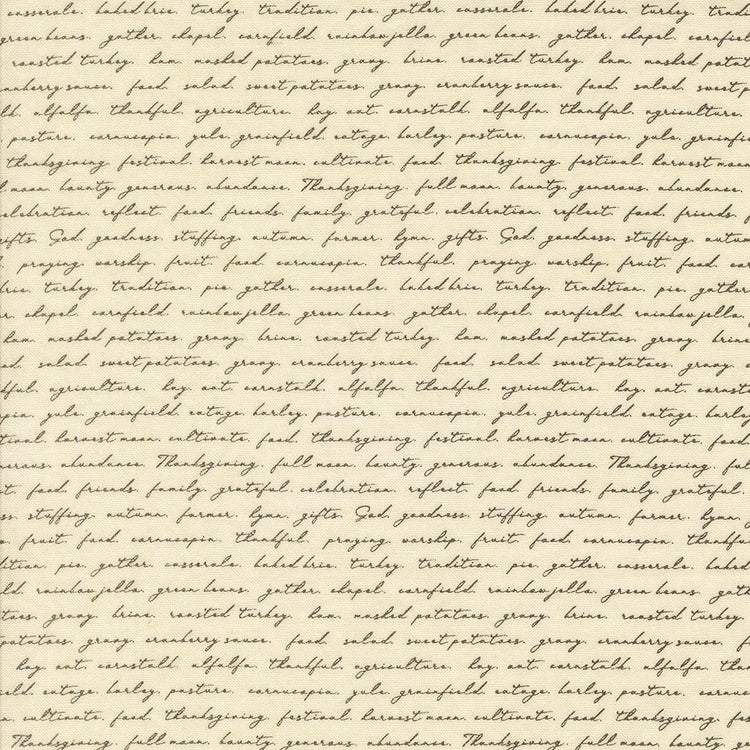 casserole. baked brie. turkey. tradition. pie. gather. casserole. baked brie. turkey.
green beans. gather. chapel. cornfield. rainbow jello. green beans. gather. chapel.
roasted turkey. ham. mashed potatoes. gravy. brine. roasted turkey. ham. mashed
cranberry sauce. food. salad. sweet potatoes. gravy. cranberry sauce. food. salad.
alfalfa. thankful. agriculture. hay. oat. cornstalk. alfalfa. thankful. agriculture.
pasture. cornucopia. yule. grainfield. cotage. barley. pasture. cornucopia. yule.
thanksgiving. festival. harvest moon. cultivate. food. thanksgiving. festival. harvest moon
moon. bounty. generous. abundance. Thanksgiving. full moon. bounty. generous. abundance.
celebration. reflect. food. friends. family. grateful. celebration. reflect. food. friends.
gifts. God. goodness. stuffing. autumn. farmer. hymn. gifts. God. goodness. stuffing.
praying. worship. fruit. food. cornucopia. thankful. praying. worship. fruit. food.
brie. turkey. tradition. pie. gather. casserole. baked brie. turkey. tradition. pie. gather
chapel. cornfield. rainbow jello. green beans. gather. chapel. cornfield. rainbow jello.
ham. mashed potatoes. gravy. brine. roasted turkey. ham. mashed potatoes. gravy. brine
salad. sweet potatoes. gravy. cranberry sauce. food. salad. sweet potatoes. gravy.
agriculture. hay. oat. cornstalk. alfalfa. thankful. agriculture. hay. oat.
yule. grainfield. cotage. barley. pasture. cornucopia. yule. grainfield. cotage. barley
harvest moon. cultivate. food. thanksgiving. festival. harvest moon. cultivate. food.
abundance. Thanksgiving. full moon. bounty. generous. abundance. Thanksgiving.
food. friends. family. grateful. celebration. reflect. food. friends. family. grateful.
stuffing. autumn. farmer. hymn. gifts. God. goodness. stuffing. autumn. farmer. hymn.
fruit. food. cornucopia. thankful. praying. worship. fruit. food. cornucopia.
pie. gather. casserole. baked brie. turkey. tradition. pie. gather. casserole. baked
rainbow jello. green beans. gather. chapel. cornfield. rainbow jello. green beans.
gravy. brine. roasted turkey. ham. mashed potatoes. gravy. brine. roasted turkey.
potatoes. gravy. cranberry sauce. food. salad. sweet potatoes. gravy. cranberry sauce.
hay. oat. cornstalk. alfalfa. thankful. agriculture. hay. oat. cornstalk. alfalfa.
cotage. barley. pasture. cornucopia. yule. grainfield. cotage. barley. pasture.
cultivate. food. thanksgiving. festival. harvest moon. cultivate. food. thanksgiving
Thanksgiving. full moon. bounty. generous. abundance. Thanksgiving. full moon. bounty.